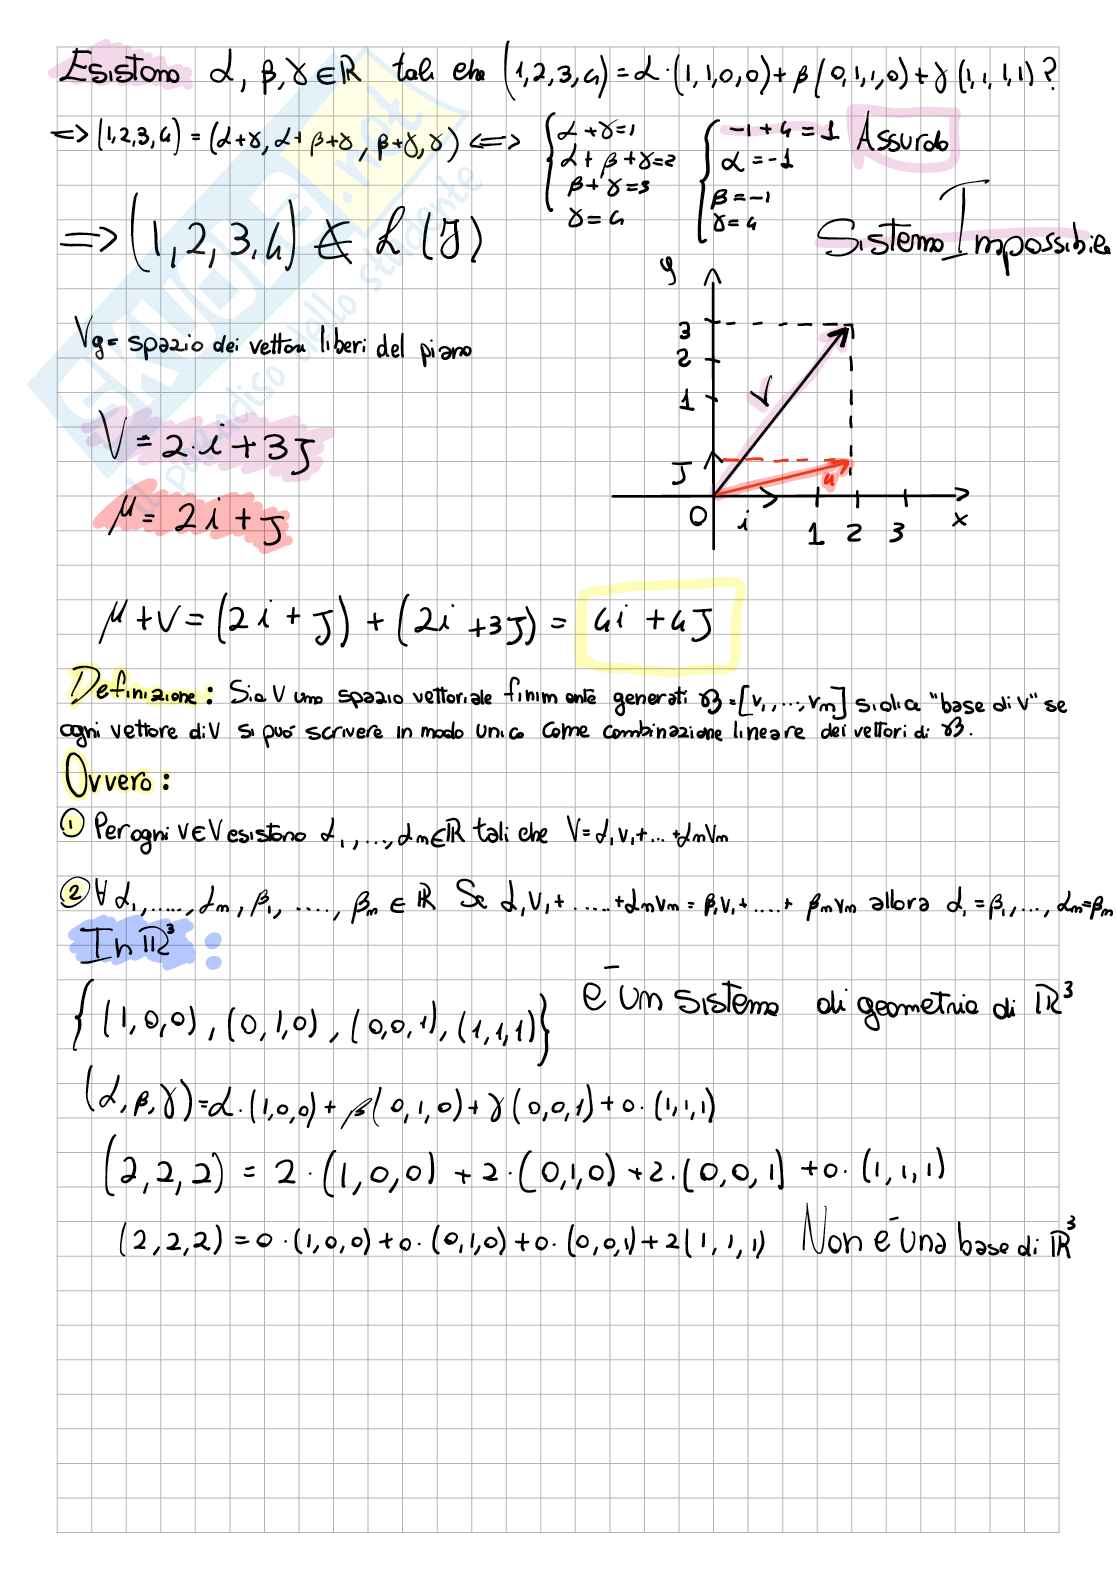 Esistono α, β, γ ∈ ℝ tali che (1,2,3,4) = α·(1,1,0,0) + β(0,1,1,0) + γ(1,1,1,1)?
<=> (1,2,3,4) = (α+γ, α+β+γ, β+γ, γ) <=>
α+γ=1
α+β+γ=2
β+γ=3
γ=4
-1+4=1
α=-1
β=-1
γ=4
Assurdo
=> (1,2,3,4) ∉ L(J)
Sistema Impossibile
Vg= spazio dei vettori liberi del piano
V = 2·i+3J
μ = 2i+J
y
3
2
1
J
V
u
0
i
1 2 3
x
μ+V = (2i+J) + (2i+3J) = 4i+4J
Definizione: Sia V uno spazio vettoriale finim ente generati B=[v₁,...,vₘ] si dica "base di V" se
ogni vettore di V si può scrivere in modo unico come combinazione lineare dei vettori di B.
Ovvero:
1 Per ogni v∈V esistono α₁,...,αₘ∈ℝ tali che V=α₁v₁+...+αₘvₘ
2 ∀ α₁,.....,αₘ, β₁,....,βₘ ∈ ℝ Se α₁v₁+.....+αₘvₘ = β₁v₁+.....+βₘvₘ allora α₁=β₁,...,αₘ=βₘ
In ℝ³:
{(1,0,0), (0,1,0), (0,0,1), (1,1,1)} è un sistema di geometria di ℝ³
(α,β,γ)=α·(1,0,0)+β(0,1,0)+γ(0,0,1)+0·(1,1,1)
(2,2,2) = 2·(1,0,0) + 2·(0,1,0) + 2·(0,0,1) + 0·(1,1,1)
(2,2,2) = 0·(1,0,0)+0·(0,1,0)+0·(0,0,1)+2(1,1,1) Non è una base di ℝ³